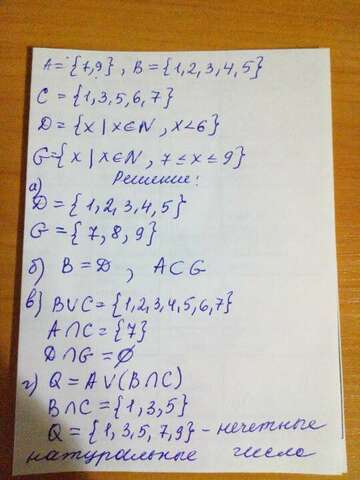 A={7,9}, B={1,2,3,4,5}
C={1,3,5,6,7}
D={x|x∈N, x<6}
G={x|x∈N, 7≤x≤9}
Решение:
а)
D={1,2,3,4,5}
G={7,8,9}
б) B=D, A⊂G
в) B∪C={1,2,3,4,5,6,7}
A∩C={7}
D∩G=∅
г) Q=A∪(B∩C)
B∩C={1,3,5}
Q={1,3,5,7,9} - нечетные
натуральные числа